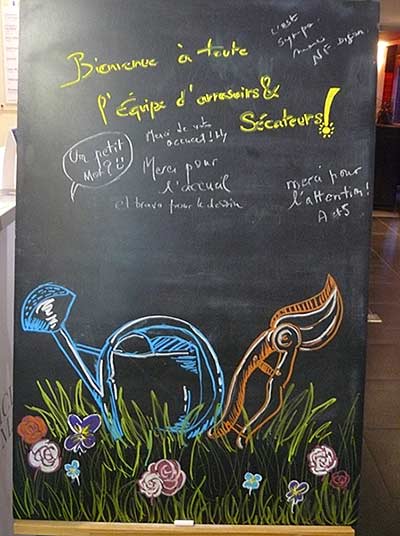 Bienvenue à toute
l'Équipe d'arrosoirs &
Sécateurs!
c'est
sympa
merci
Un petit
Mot?
Merci de votre
accueil!
Merci pour
l'accueil
et bravo pour le dessin
merci pour
l'attention!